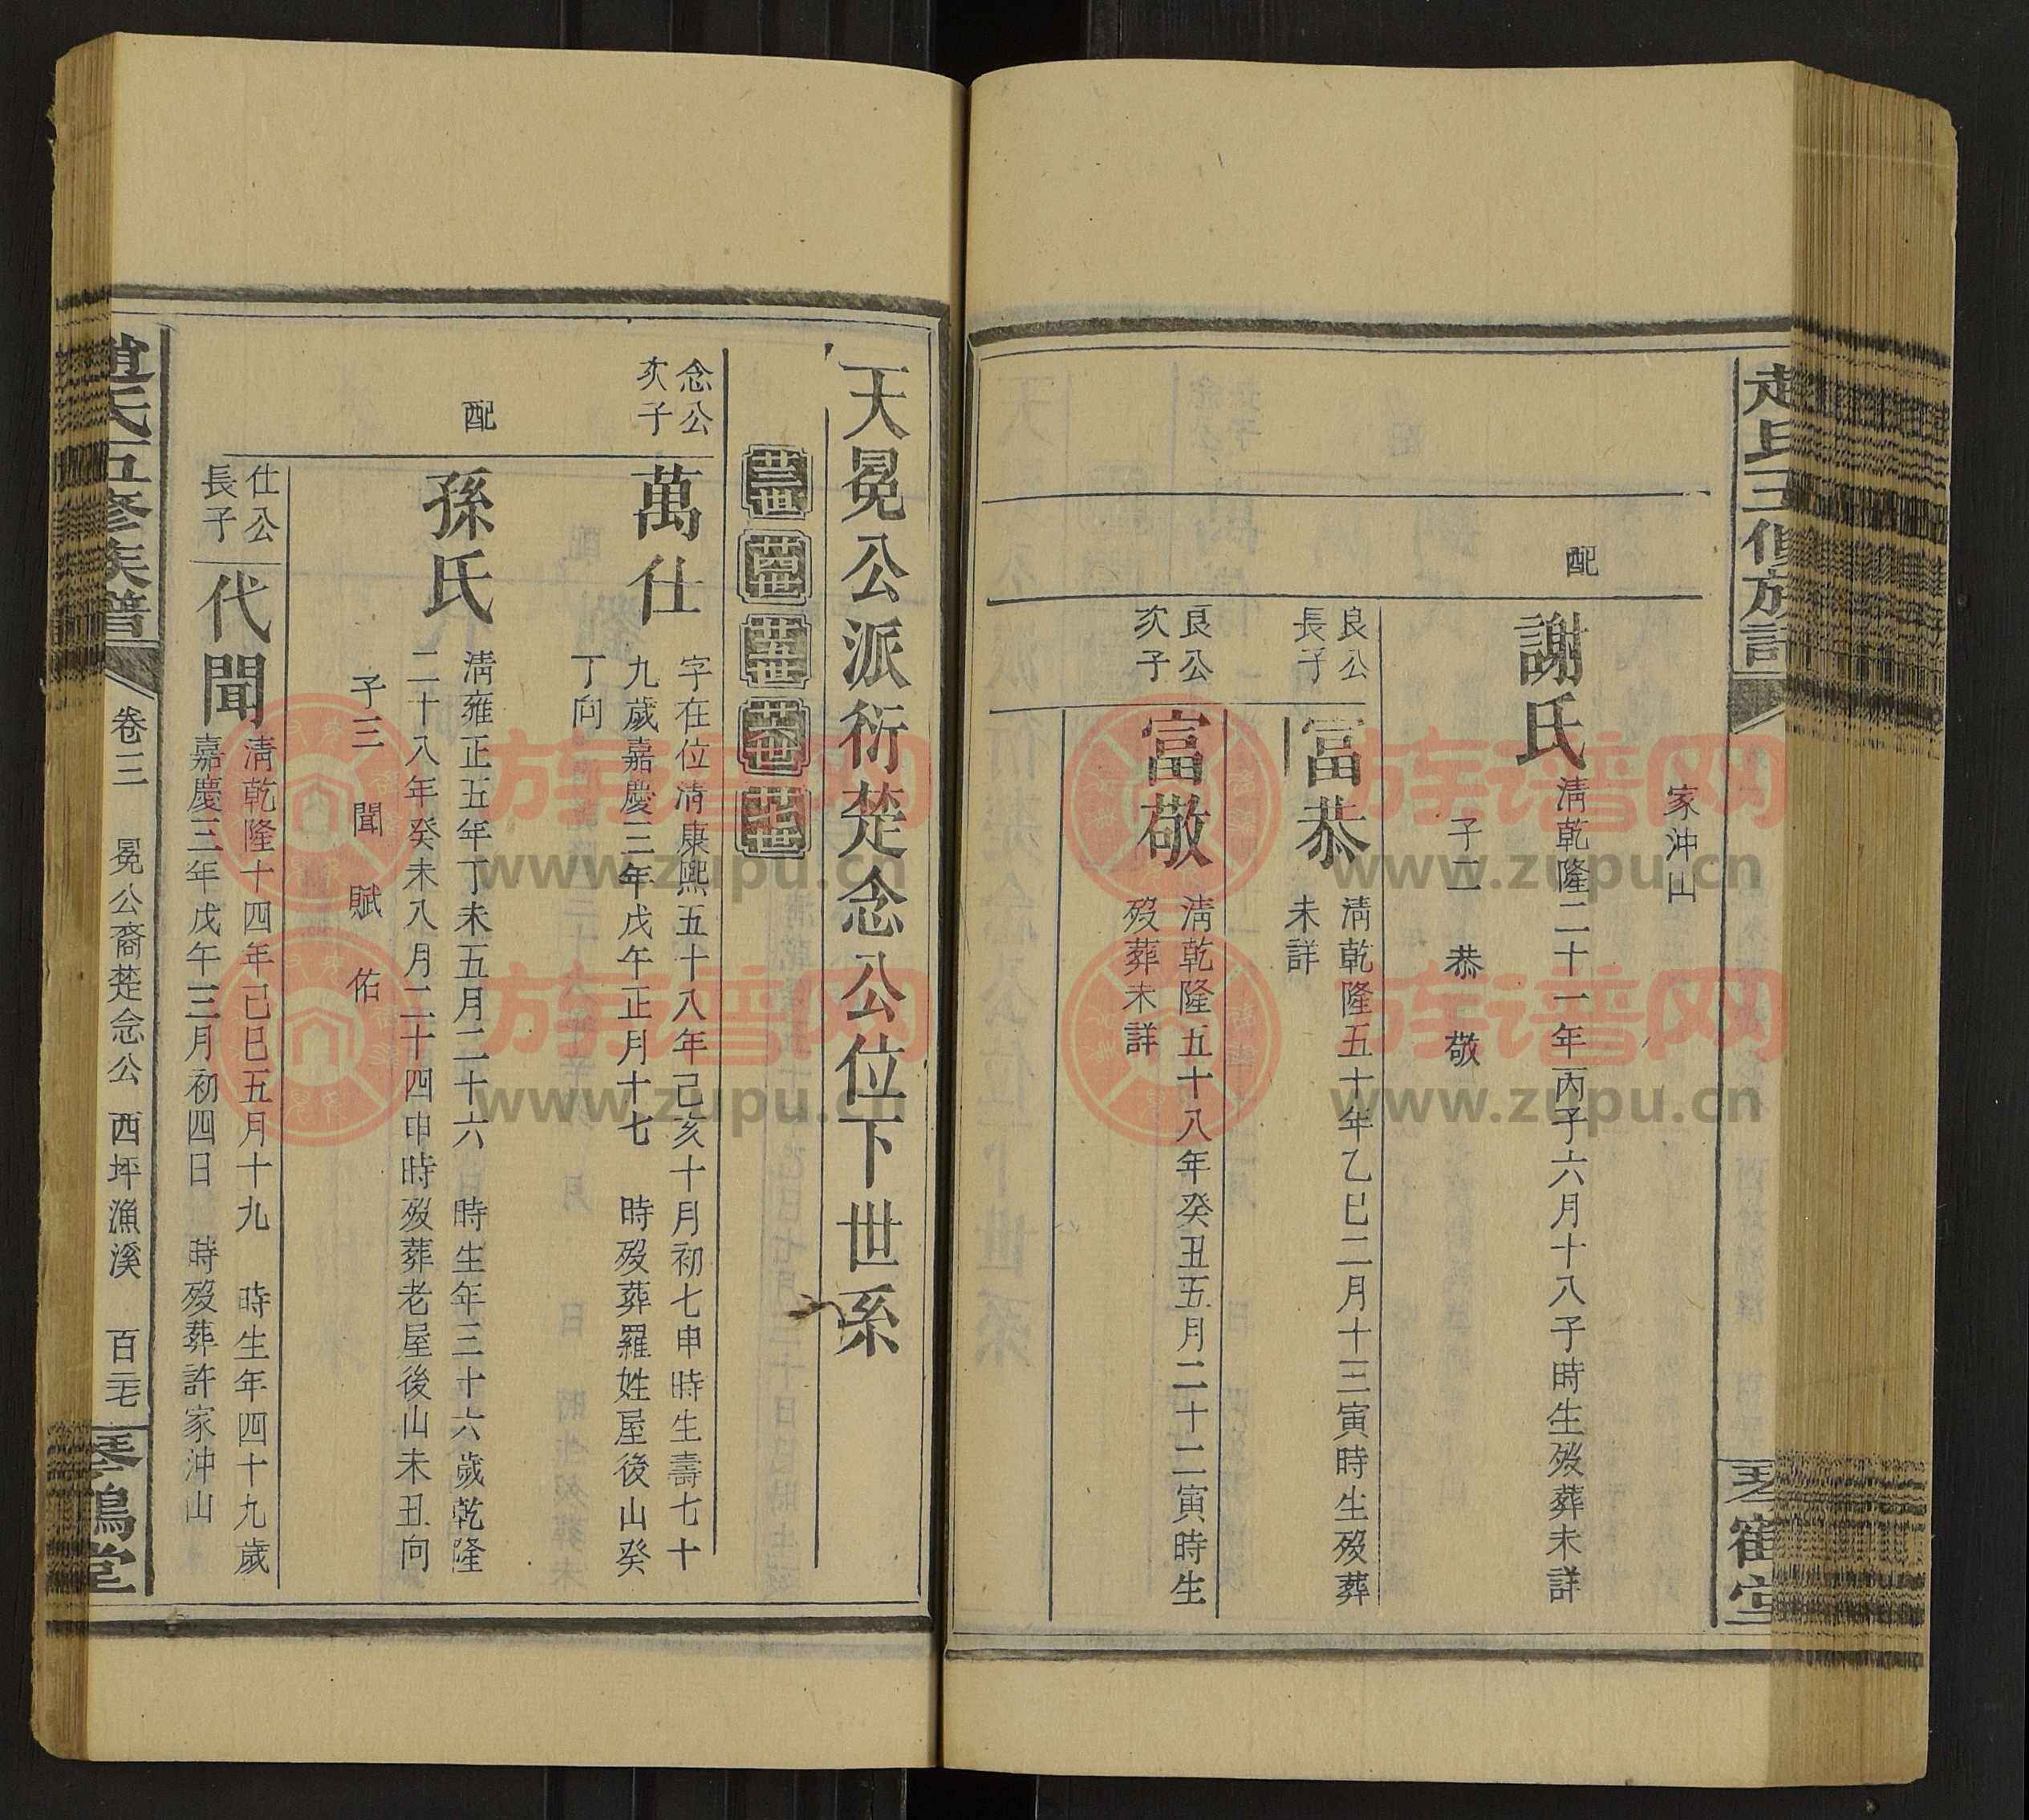 家沖山
配
謝氏
清乾隆二十一年丙子六月十八子時生歿葬未詳
子二 恭 敬
良公
長子
富恭
清乾隆五十年乙巳二月十三寅時生歿葬
未詳
良公
次子
富敬
清乾隆五十八年癸丑五月二十二寅時生
歿葬未詳
天冕公派衍楚念公位下世系
廿三世 廿四世 廿五世 廿六世 廿七世
念公
次子
萬仕
字在位清康熙五十八年己亥十月初七申時生壽七十
九歲嘉慶三年戊午正月十七 時歿葬羅姓屋後山癸
丁向
配
孫氏
清雍正五年丁未五月二十六 時生年三十六歲乾隆
二十八年癸未八月二十四申時歿葬老屋後山未丑向
子三 聞 賦 佑
仕公
長子
代聞
清乾隆十四年己巳五月十九 時生年四十九歲
嘉慶三年戊午三月初四日 時歿葬許家沖山
氏五修族譜
卷三 冕公裔楚念公 西坪漁溪 百三七
琴鶴堂
族谱网
www.zupu.cn
族谱网
www.zupu.cn
族谱网
www.zupu.cn
族谱网
www.zupu.cn